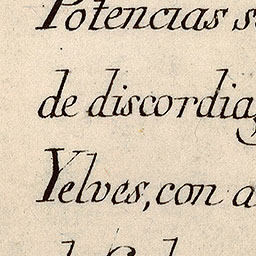 Potencias s
de discordias
Yelves, con a